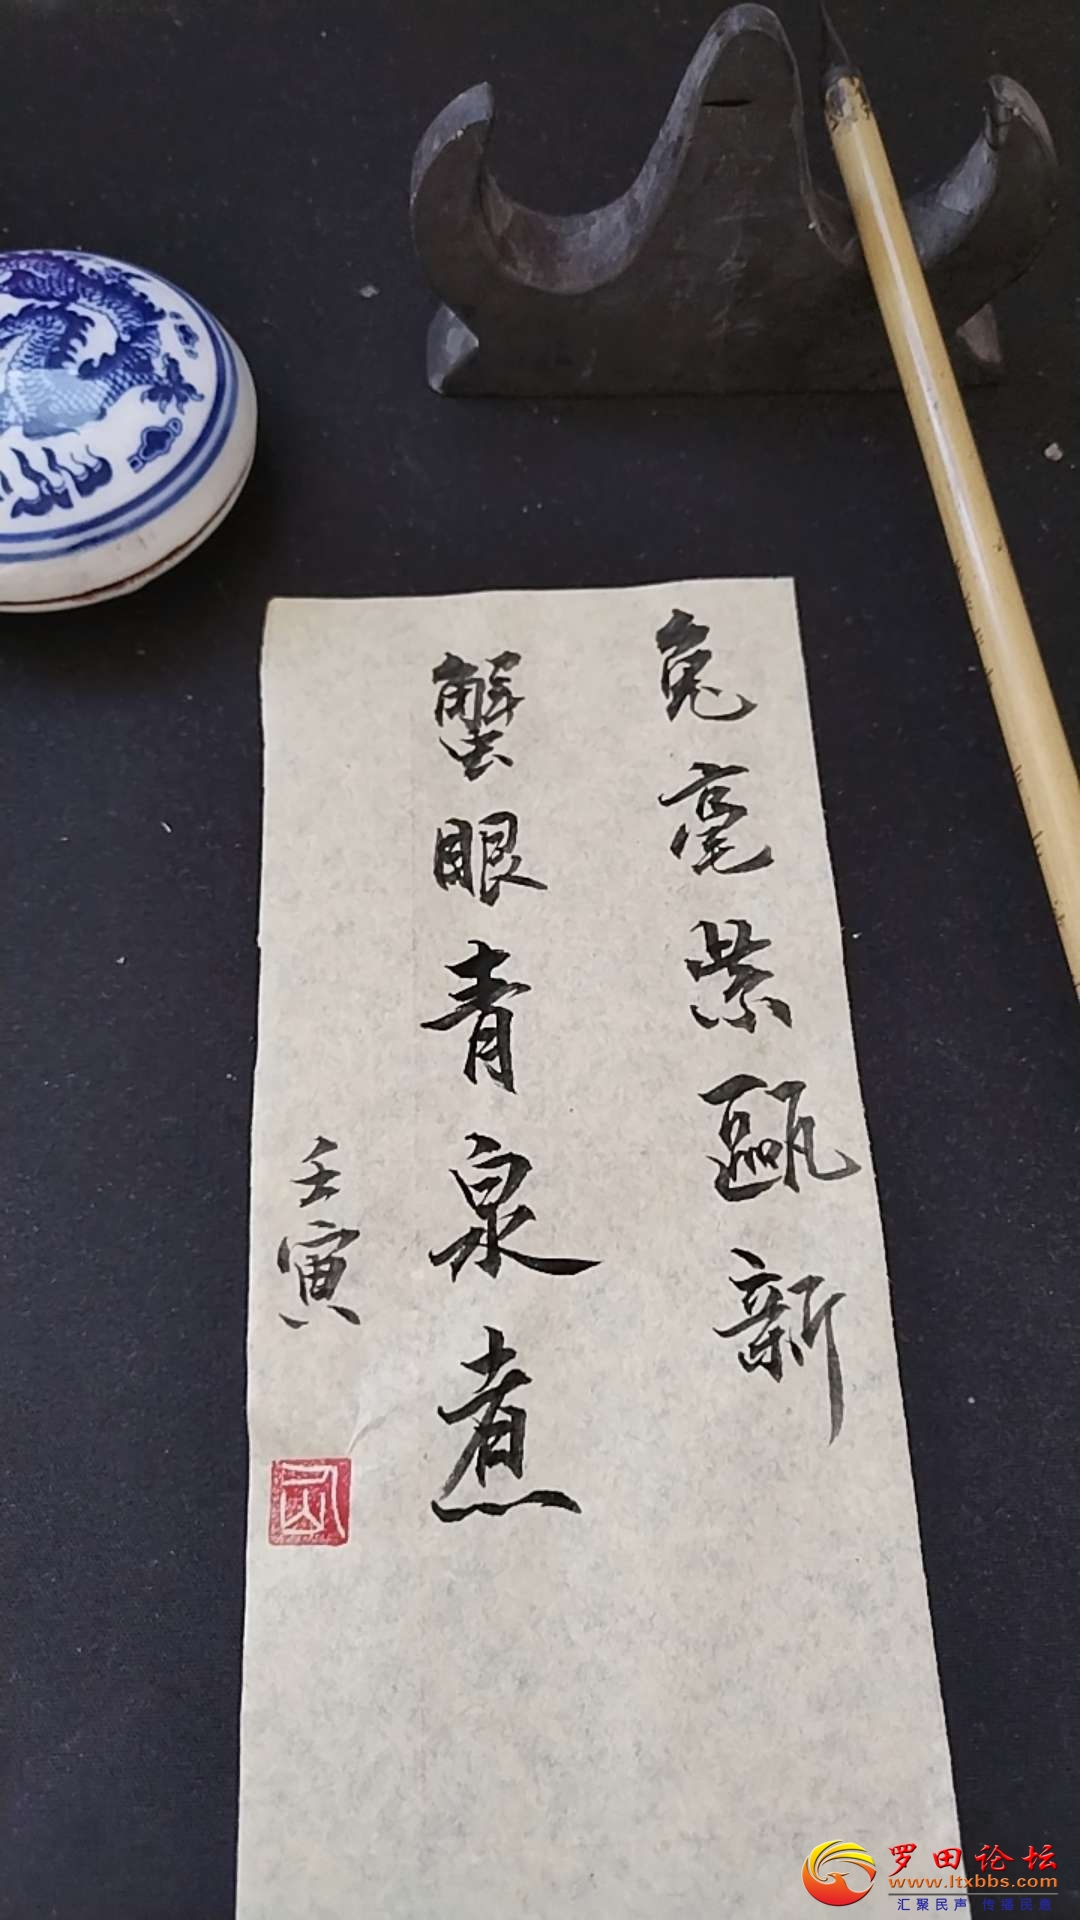 兔毫紫甌新
蟹眼青泉煮
壬寅
罗田论坛
www.ltxbbs.com
汇聚民声 传播民意